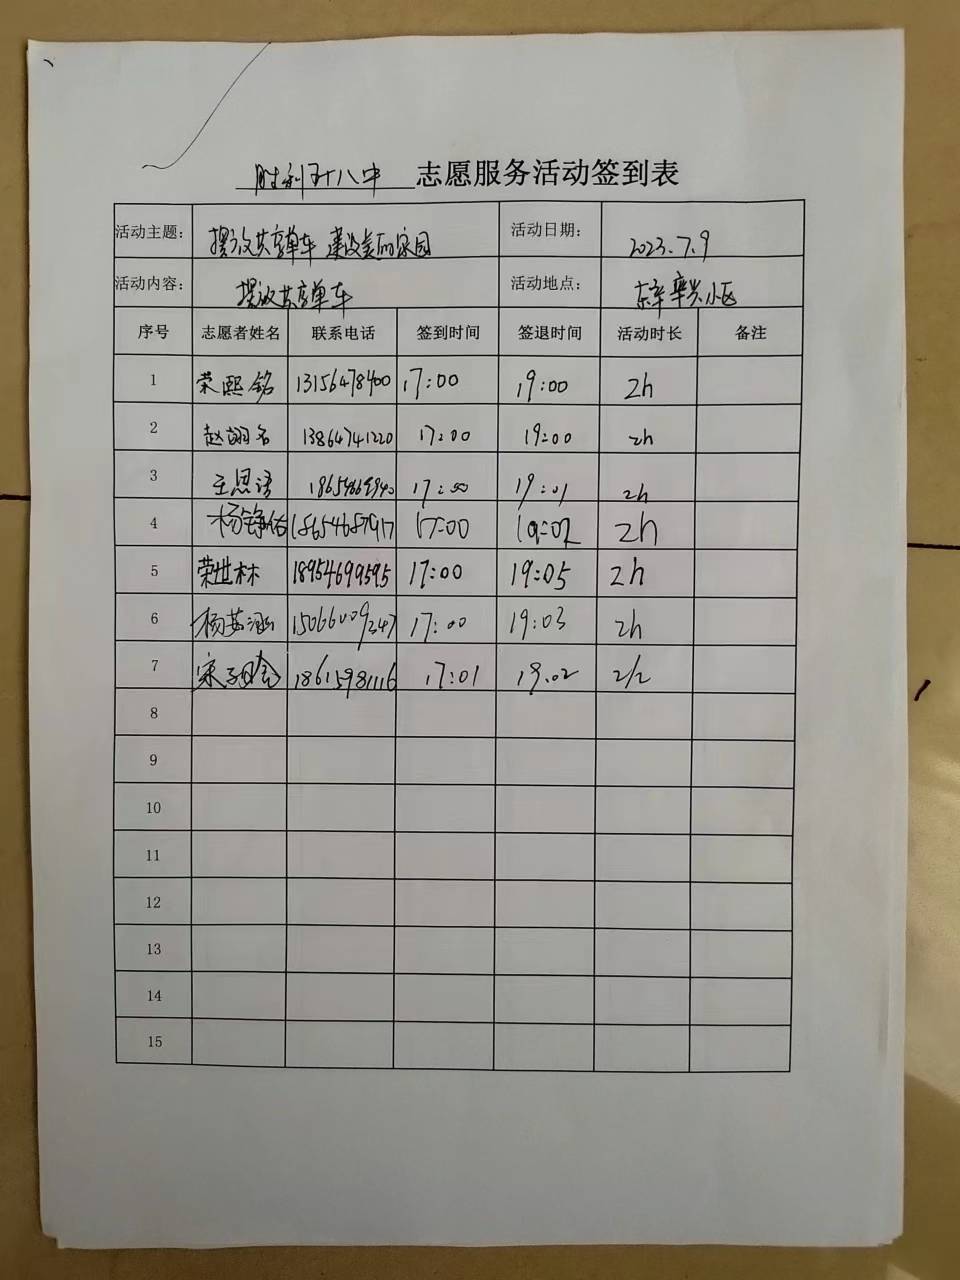 胜利五十八中 志愿服务活动签到表
活动主题: 摆放共享单车 建设美丽家园 活动日期: 2023.7.9
活动内容: 摆放共享单车 活动地点: 东辛辛兴小区
序号 志愿者姓名 联系电话 签到时间 签退时间 活动时长 备注
1 荣熙铭 13156478400 17:00 19:00 2h
2 赵翊名 13864741220 17:00 19:00 2h
3 王思语 17:00 19:01 2h
4 18654687917 17:00 19:02 2h
5 荣世林 18954699595 17:00 19:05 2h
6 15066009347 17:00 19:03 2h
7 18615981116 17:01 19:02 2h
8
9
10
11
12
13
14
15